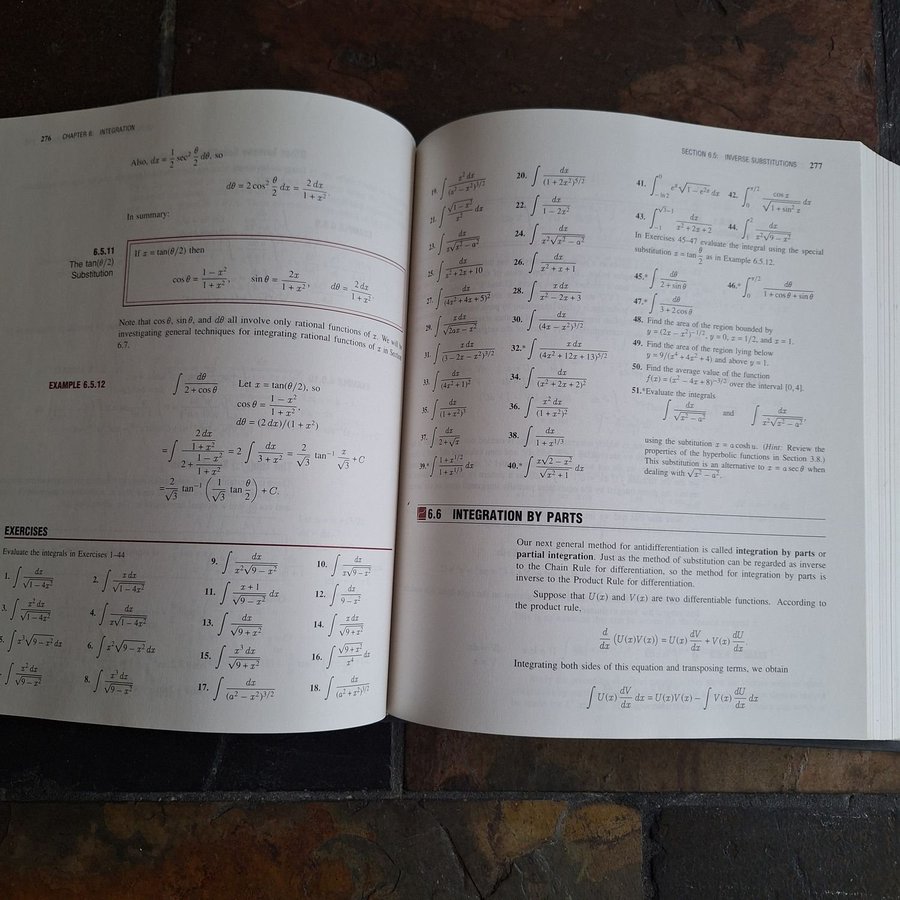 276 CHAPTER 6: INTEGRATION
Also, dx = 1/2 sec² θ/2 dθ, so
dθ = 2 cos² θ/2 dx = 2 dx/(1 + x²)
In summary:
6.5.11
The tan(θ/2)
Substitution
If x = tan(θ/2) then
cos θ = (1 − x²)/(1 + x²), sin θ = 2x/(1 + x²), dθ = 2 dx/(1 + x²)
Note that cos θ, sin θ, and dθ all involve only rational functions of x. We will be
investigating general techniques for integrating rational functions of x in Section
6.7.
EXAMPLE 6.5.12
∫ dθ/(2 + cos θ) Let x = tan(θ/2), so
cos θ = (1 − x²)/(1 + x²),
dθ = (2 dx)/(1 + x²)
= ∫ (2 dx/(1 + x²))/(2 + (1 − x²)/(1 + x²)) = 2 ∫ dx/(3 + x²) = 2/√3 tan⁻¹ x/√3 + C
= 2/√3 tan⁻¹ (1/√3 tan θ/2) + C.
EXERCISES
Evaluate the integrals in Exercises 1–44
1. ∫ dx/√(1 − 4x²) 2. ∫ x dx/√(1 − 4x²)
3. ∫ x² dx/√(1 − 4x²) 4. ∫ dx/(x√(1 − 4x²))
5. ∫ x³√(9 − x²) dx 6. ∫ x²√(9 − x²) dx
∫ x² dx/√(9 − x²) 8. ∫ x³ dx/√(9 − x²)
9. ∫ dx/(x²√(9 − x²)) 10. ∫ dx/(x√(9 − x²))
11. ∫ (x + 1)/√(9 − x²) dx 12. ∫ dx/(9 − x²)
13. ∫ dx/√(9 + x²) 14. ∫ x dx/√(9 + x²)
15. ∫ x³ dx/√(9 + x²) 16. ∫ √(9 + x²)/x⁴ dx
17. ∫ dx/(a² − x²)^(3/2) 18. ∫ dx/(a² + x²)^(3/2)
SECTION 6.5: INVERSE SUBSTITUTIONS 277
19. ∫ x² dx/(a² − x²)^(3/2) 20. ∫ dx/(1 + 2x²)^(5/2)
21. ∫ √(1 − x²)/x² dx 22. ∫ dx/(1 − 2x²)
23. ∫ dx/(x√(x² − a²)) 24. ∫ dx/(x²√(x² − a²))
25. ∫ dx/(x² + 2x + 10) 26. ∫ dx/(x² + x + 1)
27. ∫ dx/(4x² + 4x + 5)² 28. ∫ x dx/(x² − 2x + 3)
29. ∫ x dx/√(2ax − x²) 30. ∫ dx/(4x − x²)^(3/2)
31. ∫ x dx/(3 − 2x − x²)^(3/2) 32.* ∫ x dx/(4x² + 12x + 13)^(5/2)
33. ∫ dx/(4x² + 1)³ 34. ∫ dx/(x² + 2x + 2)²
35. ∫ dx/(1 + x²)³ 36. ∫ x² dx/(1 + x²)²
37. ∫ dx/(2 + √x) 38. ∫ dx/(1 + x^(1/3))
39.* ∫ (1 + x^(1/2))/(1 + x^(1/3)) dx 40.* ∫ x√(2 − x²)/√(x² + 1) dx
41. ∫_{−ln 2}^{0} e^x √(1 − e^(2x)) dx 42. ∫_{0}^{π/2} cos x/√(1 + sin² x) dx
43. ∫_{−1}^{√3−1} dx/(x² + 2x + 2) 44. ∫_{1}^{2} dx/(x²√(9 − x²))
In Exercises 45–47 evaluate the integral using the special
substitution x = tan θ/2 as in Example 6.5.12.
45.* ∫ dθ/(2 + sin θ) 46.* ∫_{0}^{π/2} dθ/(1 + cos θ + sin θ)
47.* ∫ dθ/(3 + 2 cos θ)
48. Find the area of the region bounded by
y = (2x − x²)^(−1/2), y = 0, x = 1/2, and x = 1.
49. Find the area of the region lying below
y = 9/(x⁴ + 4x² + 4) and above y = 1.
50. Find the average value of the function
f(x) = (x² − 4x + 8)^(−3/2) over the interval [0, 4].
51.* Evaluate the integrals
∫ dx/√(x² − a²) and ∫ dx/(x²√(x² − a²)),
using the subtitution x = a cosh u. (Hint: Review the
properties of the hyperbolic functions in Section 3.8.)
This substitution is an alternative to x = a sec θ when
dealing with √(x² − a²).
6.6 INTEGRATION BY PARTS
Our next general method for antidifferentiation is called integration by parts or
partial integration. Just as the method of substitution can be regarded as inverse
to the Chain Rule for differentiation, so the method for integration by parts is
inverse to the Product Rule for differentiation.
Suppose that U(x) and V(x) are two differentiable functions. According to
the product rule,
d/dx (U(x)V(x)) = U(x) dV/dx + V(x) dU/dx
Integrating both sides of this equation and transposing terms, we obtain
∫ U(x) dV/dx dx = U(x)V(x) − ∫ V(x) dU/dx dx